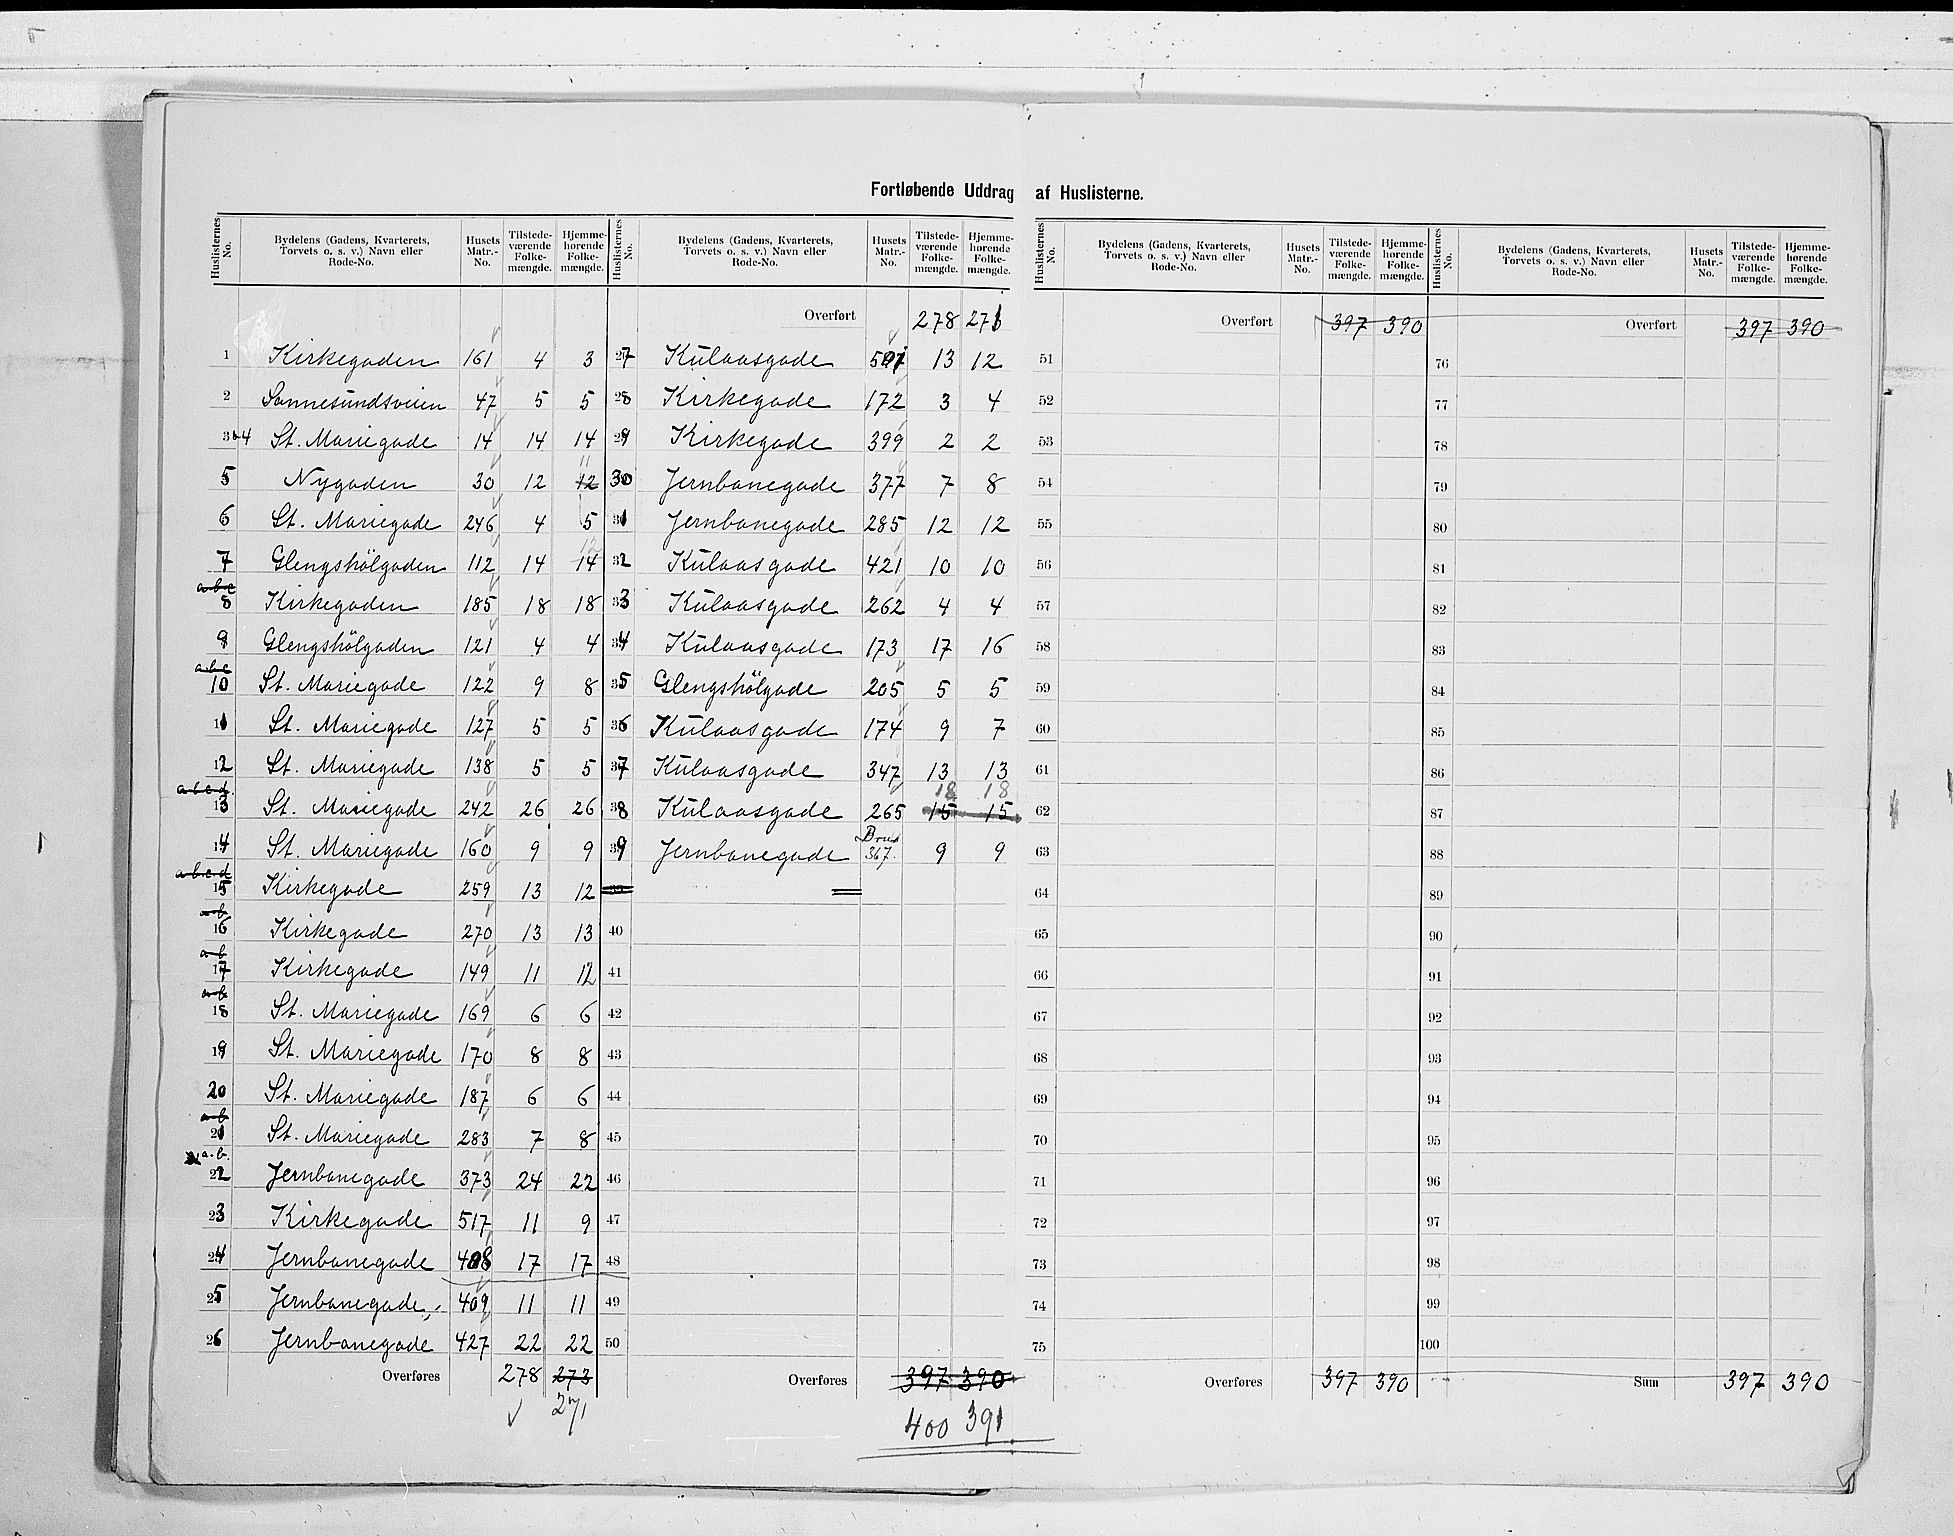 Fortløbende Uddrag af Huslisterne.
Huslisternes No. | Bydelens (Gadens, Kvarterets, Torvets o. s. v.) Navn eller Rode-No. | Husets Matr.-No. | Tilstedeværende Folkemængde. | Hjemmehørende Folkemængde.
1 Kirkegaden 161 4 3
2 Sannesundsveien 47 5 5
3 4 St. Mariegade 14 14 14
5 Nygaden 30 12 12 11
6 St. Mariegade 246 4 5
7 Glengshölgaden 112 14 14 12
a.b.c
8 Kirkegaden 185 18 18
9 Glengshölgaden 121 4 4
a.b.c
10 St. Mariegade 122 9 8
11 St. Mariegade 127 5 5
12 St. Mariegade 138 5 5
a.b.c.d.
13 St. Mariegade 242 26 26
14 St. Mariegade 160 9 9
a.b.c.d
15 Kirkegade 259 13 12
a.b.
16 Kirkegade 270 13 13
a.b
17 Kirkegade 149 11 12
a.b
18 St. Mariegade 169 6 6
19 St. Mariegade 170 8 8
20 St. Mariegade 187 6 6
a.b
21 St. Mariegade 283 7 8
a.b.
22 Jernbanegade 373 24 22
23 Kirkegade 517 11 9
24 Jernbanegade 408 17 17
25 Jernbanegade 409 11 11
26 Jernbanegade 427 22 22
Overføres 278 273
271
Huslisternes No. | Bydelens (Gadens, Kvarterets, Torvets o. s. v.) Navn eller Rode-No. | Husets Matr.-No. | Tilstedeværende Folkemængde. | Hjemmehørende Folkemængde.
Overført 278 271
27 Kulaasgade 13 12
28 Kirkegade 172 3 4
29 Kirkegade 399 2 2
30 Jernbanegade 377 7 8
31 Jernbanegade 285 12 12
32 Kulaasgade 421 10 10
33 Kulaasgade 262 4 4
34 Kulaasgade 173 17 16
35 Glengshölgade 205 5 5
36 Kulaasgade 174 9 7
37 Kulaasgade 347 13 13
18 18
38 Kulaasgade 265 15 15
39 Jernbanegade 367. 9 9
40
41
42
43
44
45
46
47
48
49
50
Overføres 397 390
400 391
Huslisternes No. | Bydelens (Gadens, Kvarterets, Torvets o. s. v.) Navn eller Rode-No. | Husets Matr.-No. | Tilstedeværende Folkemængde. | Hjemmehørende Folkemængde.
Overført 397 390
51
52
53
54
55
56
57
58
59
60
61
62
63
64
65
66
67
68
69
70
71
72
73
74
75
Overføres 397 390
Huslisternes No. | Bydelens (Gadens, Kvarterets, Torvets o. s. v.) Navn eller Rode-No. | Husets Matr.-No. | Tilstedeværende Folkemængde. | Hjemmehørende Folkemængde.
Overført 397 390
76
77
78
79
80
81
82
83
84
85
86
87
88
89
90
91
92
93
94
95
96
97
98
99
100
Sum 397 390